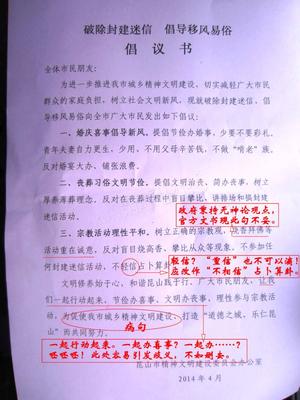 破除封建迷信　倡导移风易俗
倡 议 书
全体市民朋友:
为进一步推进我市城乡精神文明建设,切实减轻广大市民
群众的家庭负担,树立社会文明新风,现就破除封建迷信、倡
导移风易俗向全市广大市民发出如下倡议:
一、婚庆喜事倡导新风。提倡节俭办婚事,少要不要彩礼。
青年夫妻自力更生,少用、不用父母辛苦钱,不做“啃老”族。
反对婚宴大办、铺张浪费。
二、丧葬习俗文明节俭。提倡文明治丧、简办丧事,树立
厚养薄葬理念,反对在丧葬过程中盲目攀比、讲排场和搞封建
迷信活动。
政府秉持无神论观点,
官方文书现此句不妥。
三、宗教活动理性平和。树立正确的宗教观,烧香拜佛等
活动重在诚意,反对盲目烧高香、攀比从众等现象。不参加任
何封建迷信活动,不轻信占卜算卦
轻信?“重信”也不可以滴!
应改作“不相信”占卜算卦。
文明修养始于心,和谐昆山践于行。广大市民朋友,让我
们一起行动起来,节俭办喜事,文明办丧事,理性参与宗教活
动,为促使我市城乡精神文明建设,打造“道德之城、乐仁昆
山”而共同努力。
病句
一起行动起来。一起办喜事?一起办……?
呸呸呸!此处容易引发歧义,不如删去。
昆山市精神文明建设委员会办公室
2014 年 4 月